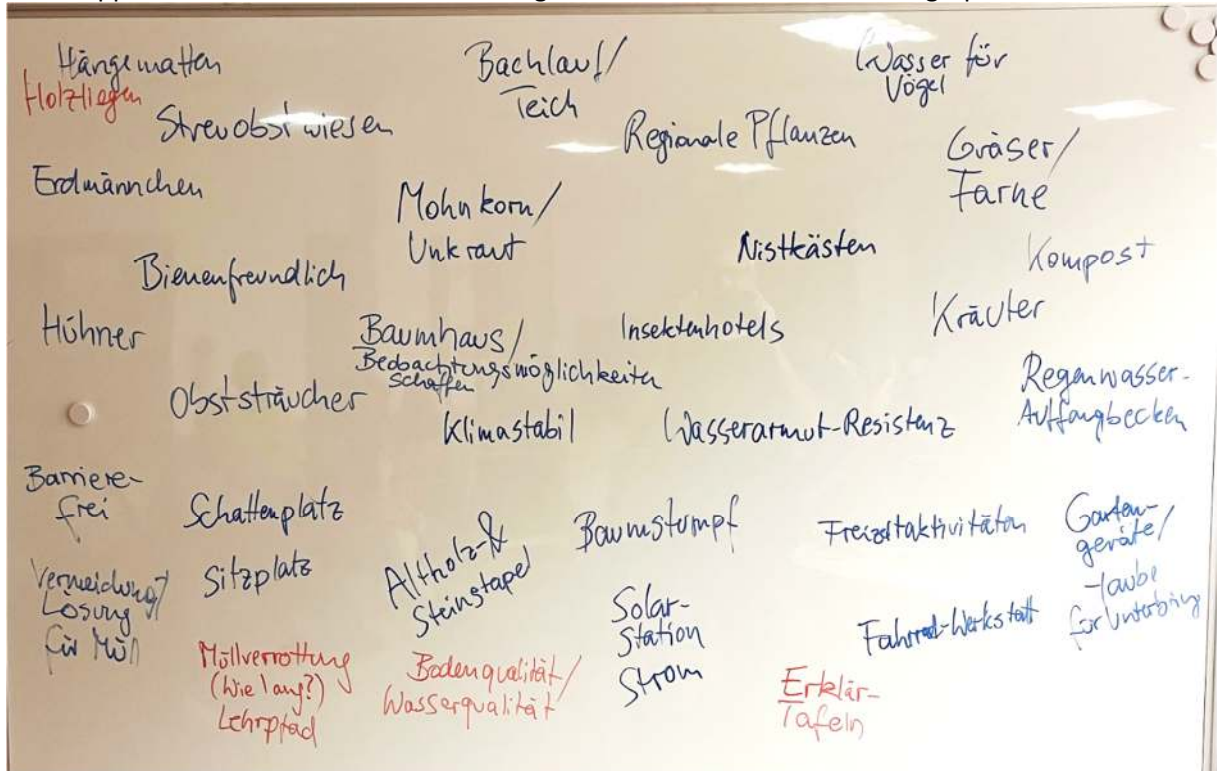 Hängematten
Holzliegen
Bachlauf/
Teich
Wasser für
Vögel
Streuobstwiesen
Regionale Pflanzen
Gräser/
Farne
Erdmännchen
Mohnkorn/
Unkraut
Nistkästen
Kompost
Bienenfreundlich
Hühner
Baumhaus/
Beobachtungsmöglichkeiten
schaffen
Insektenhotels
Kräuter
Obststräucher
Klimastabil
Wasserarmut-Resistenz
Regenwasser-
Auffangbecken
Barriere-
frei
Schattenplatz
Sitzplatz
Altholz-&
Steinstapel
Baumstumpf
Freizeitaktivitäten
Garten-
geräte/
für Unterbring
Vermeidung/
Lösung
für Müll
Solar-
Station
Strom
Fahrrad-Werkstatt
Müllverrottung
(Wie lang?)
Lehrpfad
Bodenqualität/
Wasserqualität
Erklär-
Tafeln